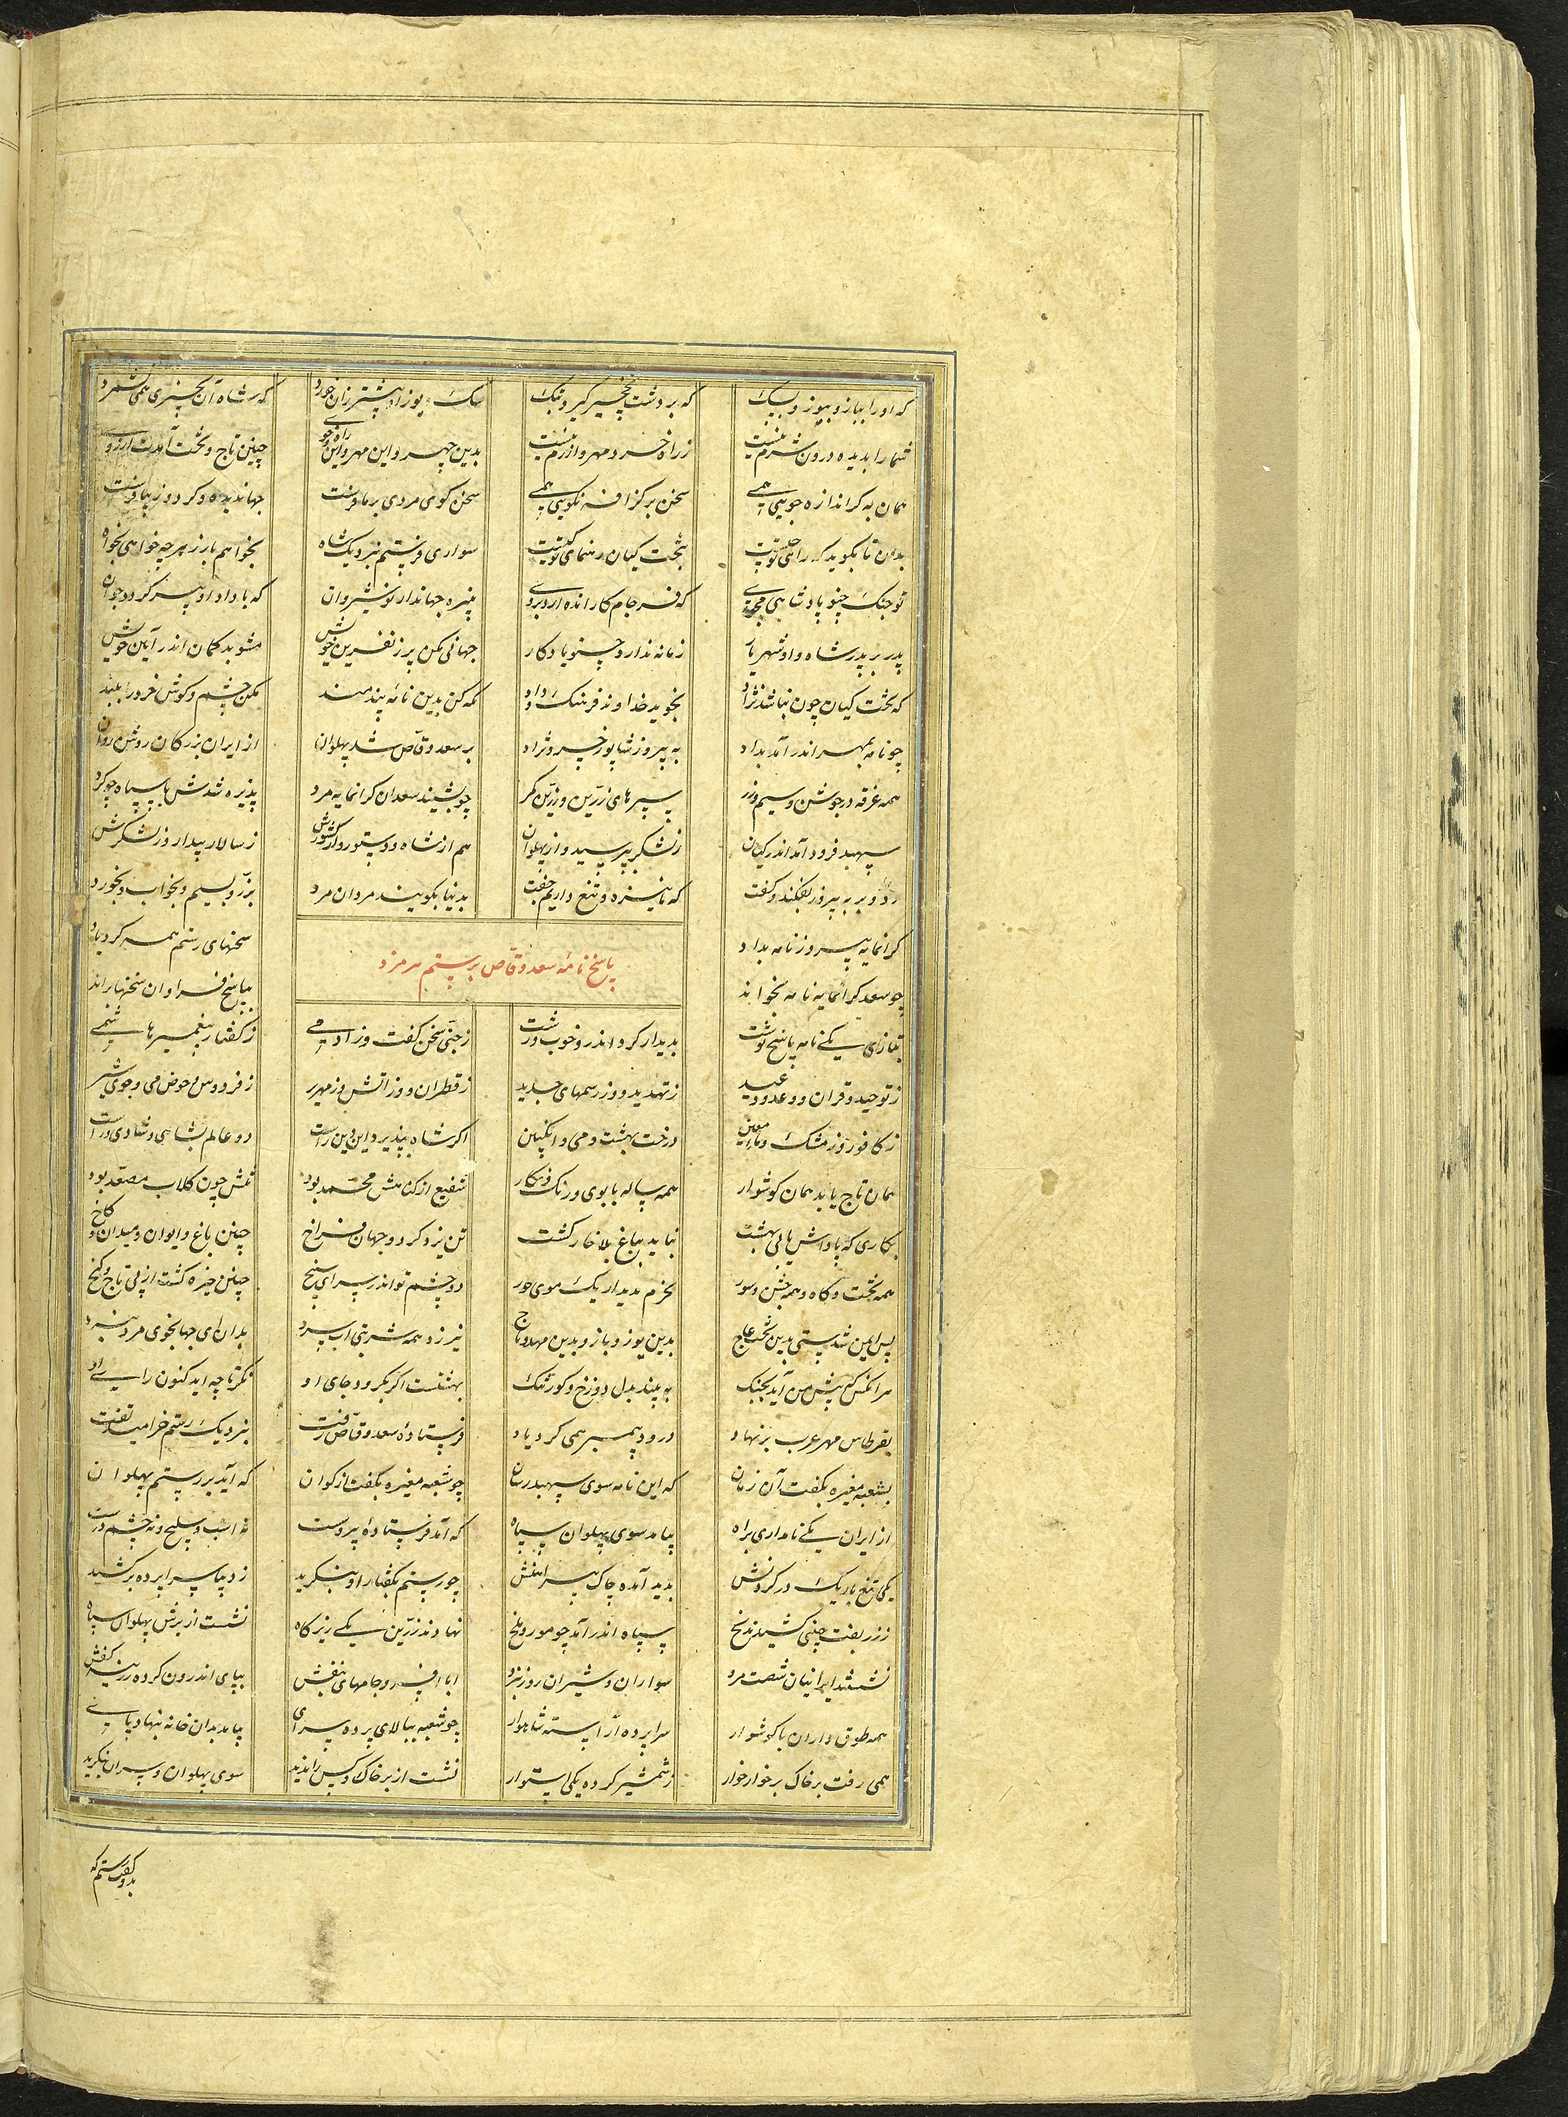 که او را بباز و بیوز و بسک که بر دشت نخچیر گیرد بتک سگ و یوز او بیشتر زان خورد که شاه آن بچیزی همی نشمرد
شما را بدیده درون شرم نیست ز راه خرد مهر و آزرم نیست بدین چهر و این مهر و این راه و خوی چنین تاج و تخت آمدت آرزوی
همان به کر اندازه جویی همی سخن بر گزافه نگویی همی سخن گوی مردی بر ما فرست جهاندیده و گرد و زیبا فرست
بدان تا بگوید که رای تو چیست بتخت کیان رهنمای تو کیست سواری فرستم بنزدیک شاه بخواهم ازو هر چه خواهی بخواه
تو جنگ چنو پادشاهی مجوی که فرجام کار انده آرد بروی نبیره جهاندار نوشیروان که با داد او پیر گردد جوان
پدر بر پدر شاه و او شهریار زمانه ندارد چنو یادگار جهانی مکن پر ز نفرین خویش مشو بدگمان اندر آیین خویش
که تخت کیان چون نباشد نژاد نجوید خداوند فرهنگ و داد نگه کن بدین نامه پندمند مکن چشم و گوش خرد را ببند
چو نامه بمهر اندر آمد بداد به پیروز شاپور خسرو نژاد بر سعد وقاص شد پهلوان از ایران بزرگان روشن روان
همه غرقه در جوشن و سیم و زر سپرهای زرین و زرین کمر چو بشنید سعد آن گرانمایه مرد پذیره شدش با سپاه چو گرد
سپهبد فرود آمد اندر کیان ز لشکر بپرسید و از پهلوان هم از شاه و دستور و از کشورش ز سالار بیدار و از لشکرش
ردا و بر به پیروز بفکند و گفت که ما نیزه و تیغ داریم جفت بدنیا نگویند مردان مرد بزر و بسیم و بخواب و بخورد
گرانمایه پیروز نامه بداد سخنهای رستم همه کرد یاد
پاسخ نامهٔ سعد وقاص برستم هرمزد
چو سعد گرانمایه نامه بخواند بپاسخ فراوان سخنها براند
بتازی یکی نامه پاسخ نوشت بدیدار کرد اندرو خوب و زشت ز جنی سخن گفت وز آدمی ز گفتار پیغمبر هاشمی
ز توحید و قرآن و وعد و وعید ز تهدید و وز رسمهای جدید ز قطران و وز آتش و زمهریر ز فردوس و حوض می و جوی شیر
ز کافور و ز مشک و ماء معین درخت بهشت و می و انگبین اگر شاه بپذیرد این دین راست دو عالم بشاهی و شادی وراست
همان تاج یابد همان گوشوار همه ساله با بوی و رنگ و نگار شفیع از گناهش محمد بود تنش چون گلاب مصعد بود
بکاری که پاداش یابی بهشت نباید بباغ بلا خار کشت تن یزدگرد و جهان فراخ چنین باغ و ایوان و میدان و کاخ
همه تخت و گاه و همه جشن و سور نخرم بدیدار یک موی حور دو چشم تو اندر سرای سپنج چنین خیره گشت از پی تاج و گنج
بس ایمن شدستی بدین تخت عاج بدین یوز و باز و بدین مهد و تاج نیرزد همه شربتی آب سرد بدان ای جهانجوی مرد نبرد
هر آنکس که پیش من آید بجنگ نبیند بدل دوزخ و گور تنگ بهشتست اگر بگرود جای او نگر تا چه آید کنون رای او
بقرطاس مهر عرب بر نهاد درود پیمبر همی کرد یاد فرستادهٔ سعد وقاص رفت بنزدیک رستم خرامید تفت
بشعبه مغیره بگفت آن زمان که این نامه سوی سپهبد رسان چو شعبه مغیره بگفت از گوان که آید بر رستم پهلوان
از ایران یکی نامداری براه بیامد سوی پهلوان سپاه که آمد فرستاده پیر و سست نه اسب و سلیح و نه چشم درست
یکی تیغ باریک در گردنش پدید آمده چاک پیراهنش چو رستم بگفتار او بنگرید ز دیبا سراپرده برکشید
ز زربفت چینی کشیدند نخ سپاه اندر آمد چو مور و ملخ نهادند زرین یکی زیرگاه نشست از برش پهلوان سپاه
نشستند ایرانیان شصت مرد سواران و شیران روز نبرد ابا افسر و جامهای بنفش بپای اندرون کرده زرینه کفش
همه طوق داران با گوشوار سراپرده آراسته شاهوار چو شعبه ببالای پرده سرای بیامد بدان خانه ننهاد پای
همی رفت بر خاک بر خوار خوار ز شمشیر کرده یکی استوار نشست از بر خاک و کس را ندید سوی پهلوان و سران ننگرید
بدو گفت رستم که